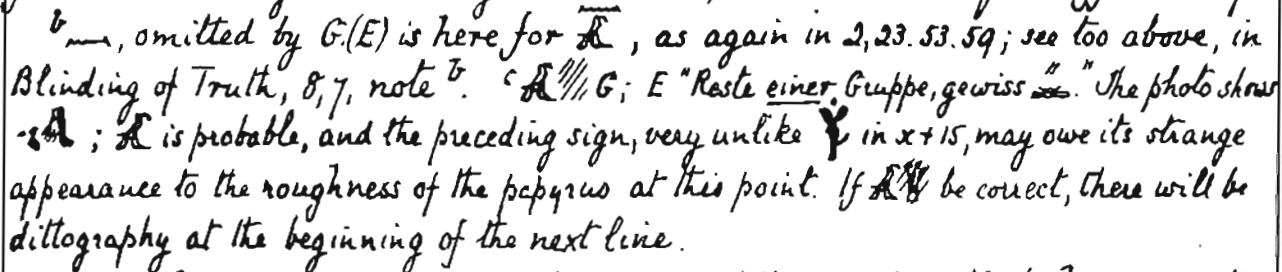 b 𓈖, omitted by G.(E) is here for 𓅓, as again in 2,23.53.59; see too above, in
Blinding of Truth, 8,7, note b. c G; E "Reste einer Gruppe, gewiss ." The photo shows
; is probable, and the preceding sign, very unlike in x+15, may owe its strange
appearance to the roughness of the papyrus at this point. If be correct, there will be
dittography at the beginning of the next line.